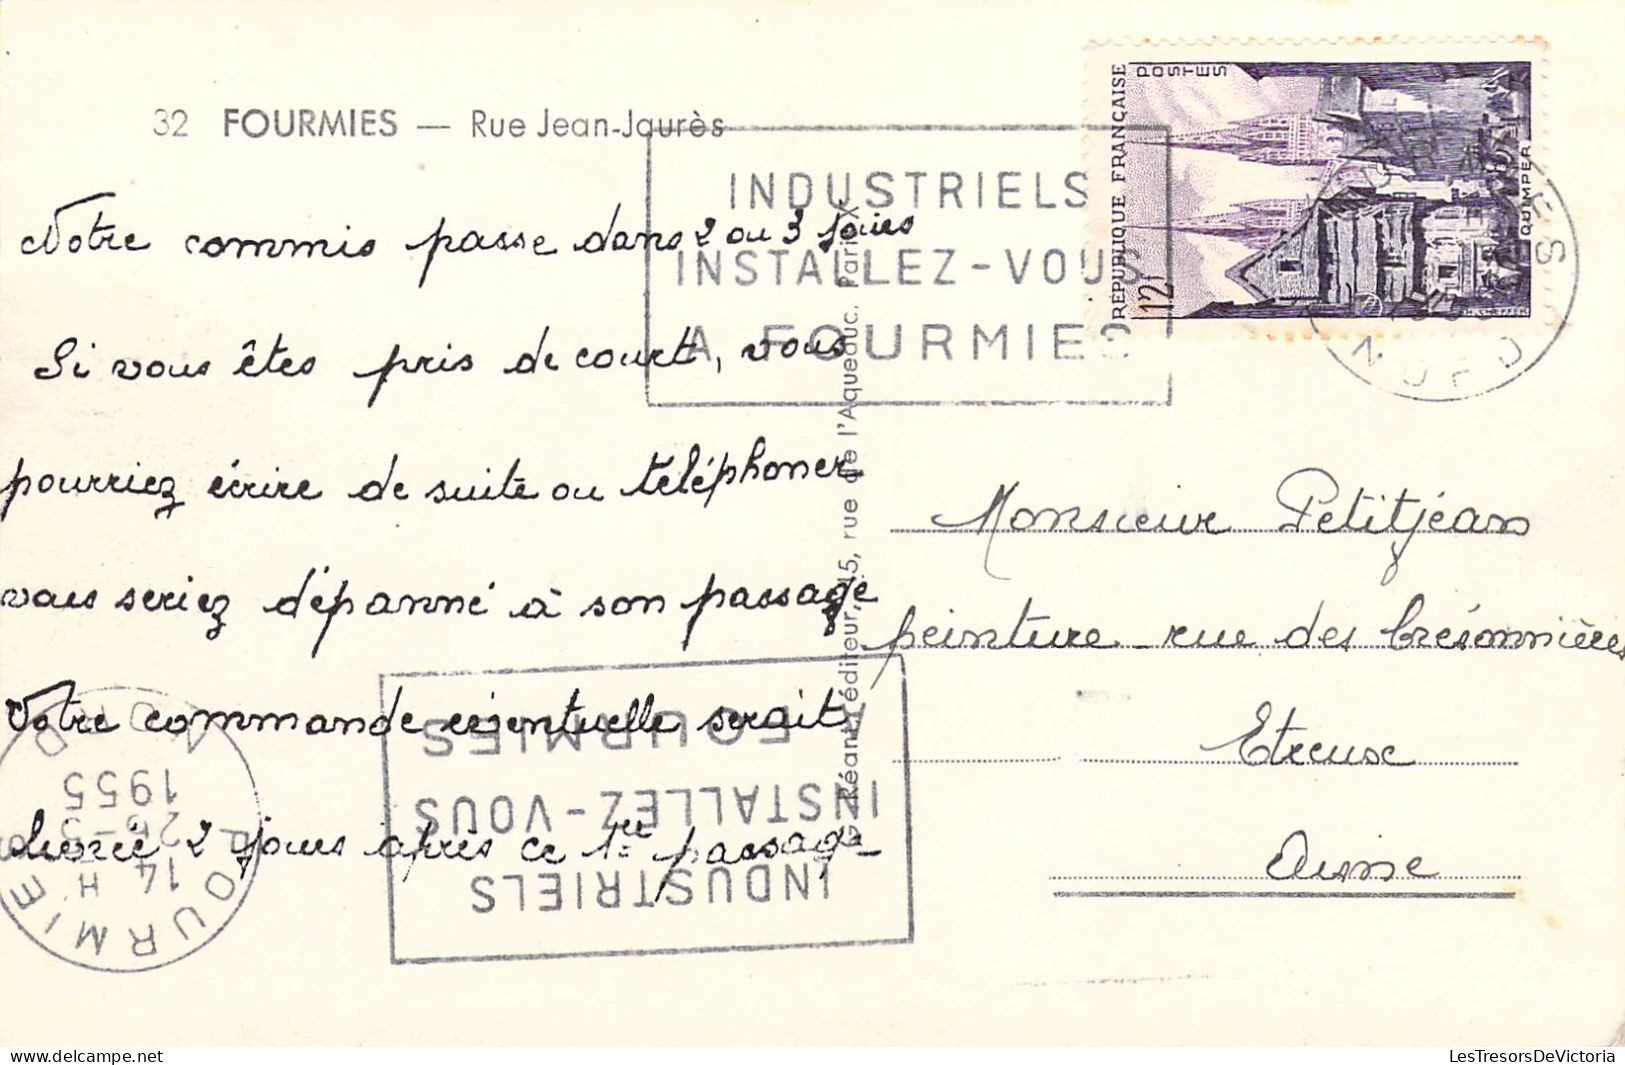 32 FOURMIES — Rue Jean-Jaurès
RÉPUBLIQUE FRANÇAISE
POSTES
12f
QUIMPER
INDUSTRIELS
INSTALLEZ-VOUS
A FOURMIES
NORD
Notre commis passe dans 2 ou 3 jours
Si vous êtes pris de court, vous
pourriez écrire de suite ou téléphoner
vous seriez dépanné à son passage
Votre commande éventuelle serait
livrée 2 jours après ce 1er passage
Réant, éditeur, 15, rue de l'Aqueduc. Paris X
Monsieur Petitjean
peinture - rue des brésonnières
Etreux
Aisne
INDUSTRIELS
INSTALLEZ-VOUS
A FOURMIES
FOURMIES
14 H
1955
NORD
LesTresorsDeVictoria
www.delcampe.net